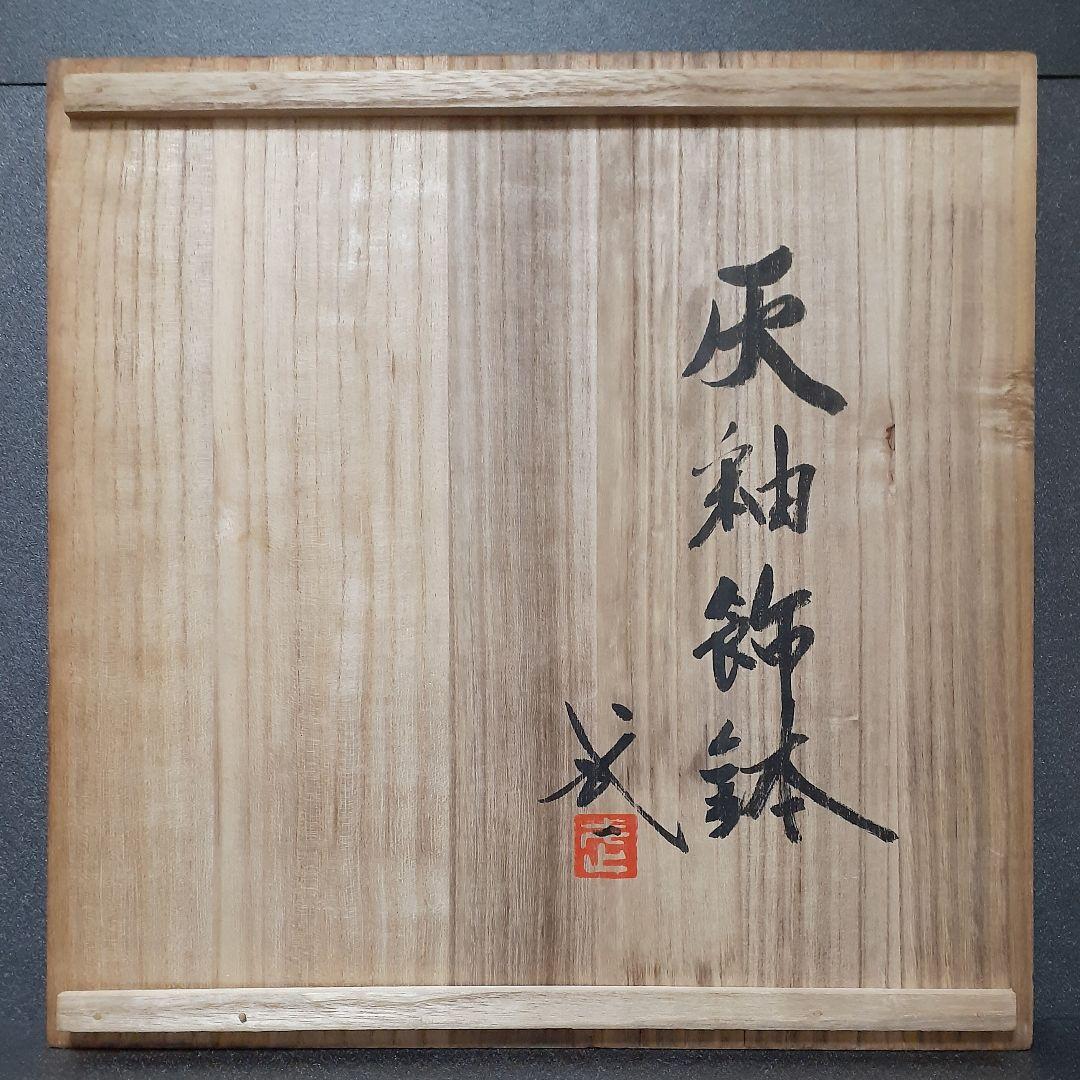 灰釉飾鉢
武